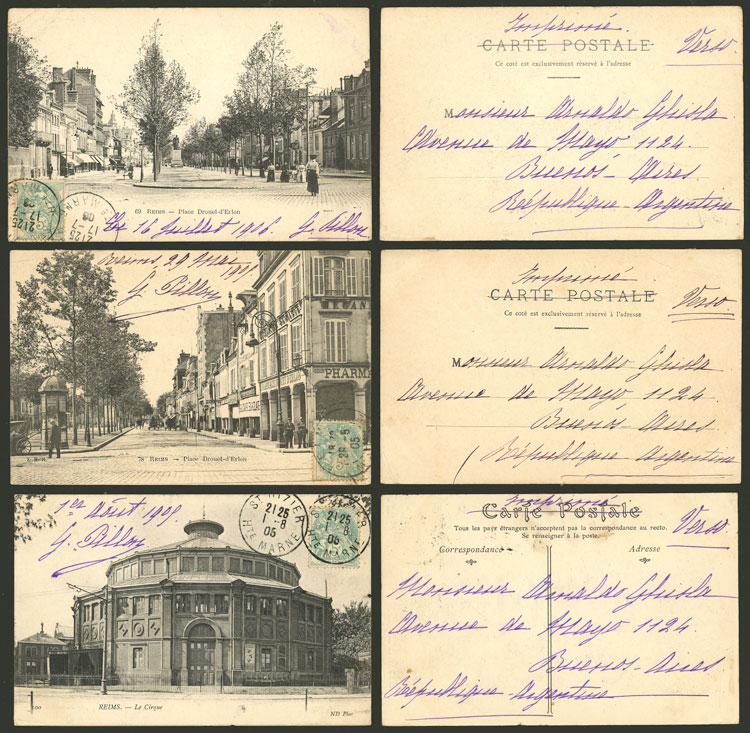 69 REIMS. — Place Drouet-d'Erlon
Le 16 Juillet 1906. G. Pillon
21 25
17 - 7
MARNE
Imprimé.
CARTE POSTALE
Verso.
Ce côté est exclusivement réservé à l'adresse
Monsieur Arnaldo Ghisla
Avenue de Mayo 1124.
Buenos-Aires
République-Argentine
Reims 29 Mai
G. Pillon
PHARM
78 REIMS. — Place Drouet-d'Erlon
29 - 5
05
Imprimé
CARTE POSTALE
Verso.
Ce côté est exclusivement réservé à l'adresse
Monsieur Arnaldo Ghisla
Avenue de Mayo 1124
Buenos Aires
République Argentine
1er Août 1905
G. Pillon
ST DIZIER
21 25
1 - 8
05
HTE MARNE
21 25
1 - 8
05
HTE MARNE
100 REIMS. — Le Cirque ND Phot
Imprimé
Carte Postale
Verso
Tous les pays étrangers n'acceptent pas la correspondance au recto.
Se renseigner à la poste.
Correspondance Adresse
Monsieur Arnaldo Ghisla
Avenue de Mayo 1124.
Buenos-Aires
République-Argentine